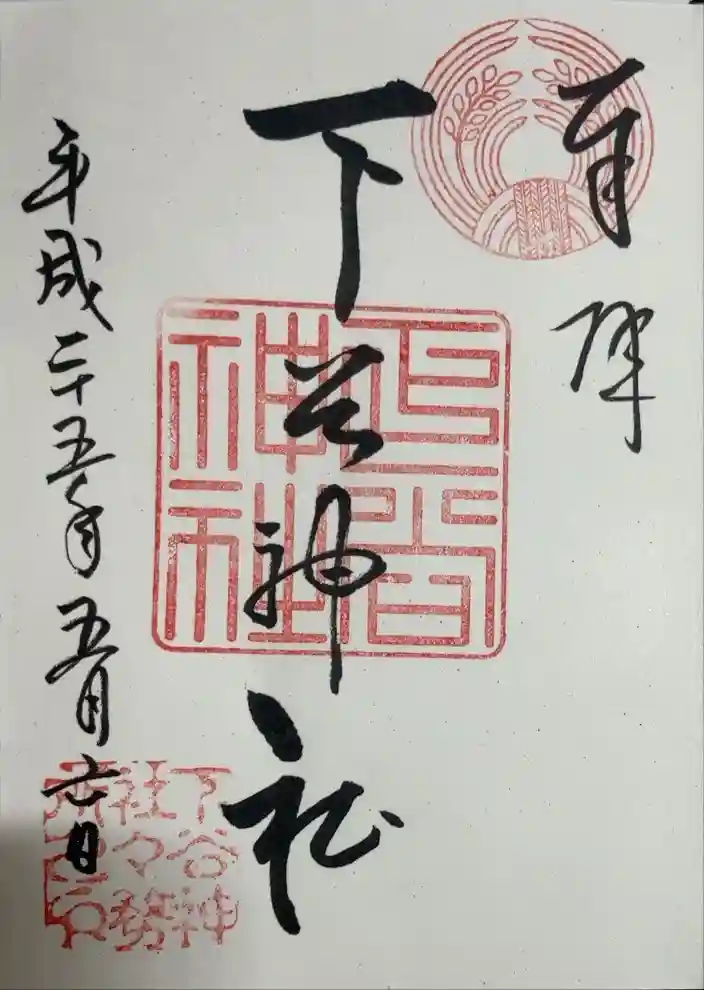 奉拝
下谷神社
平成二十五年五月六日
下谷神
社々務
所之印